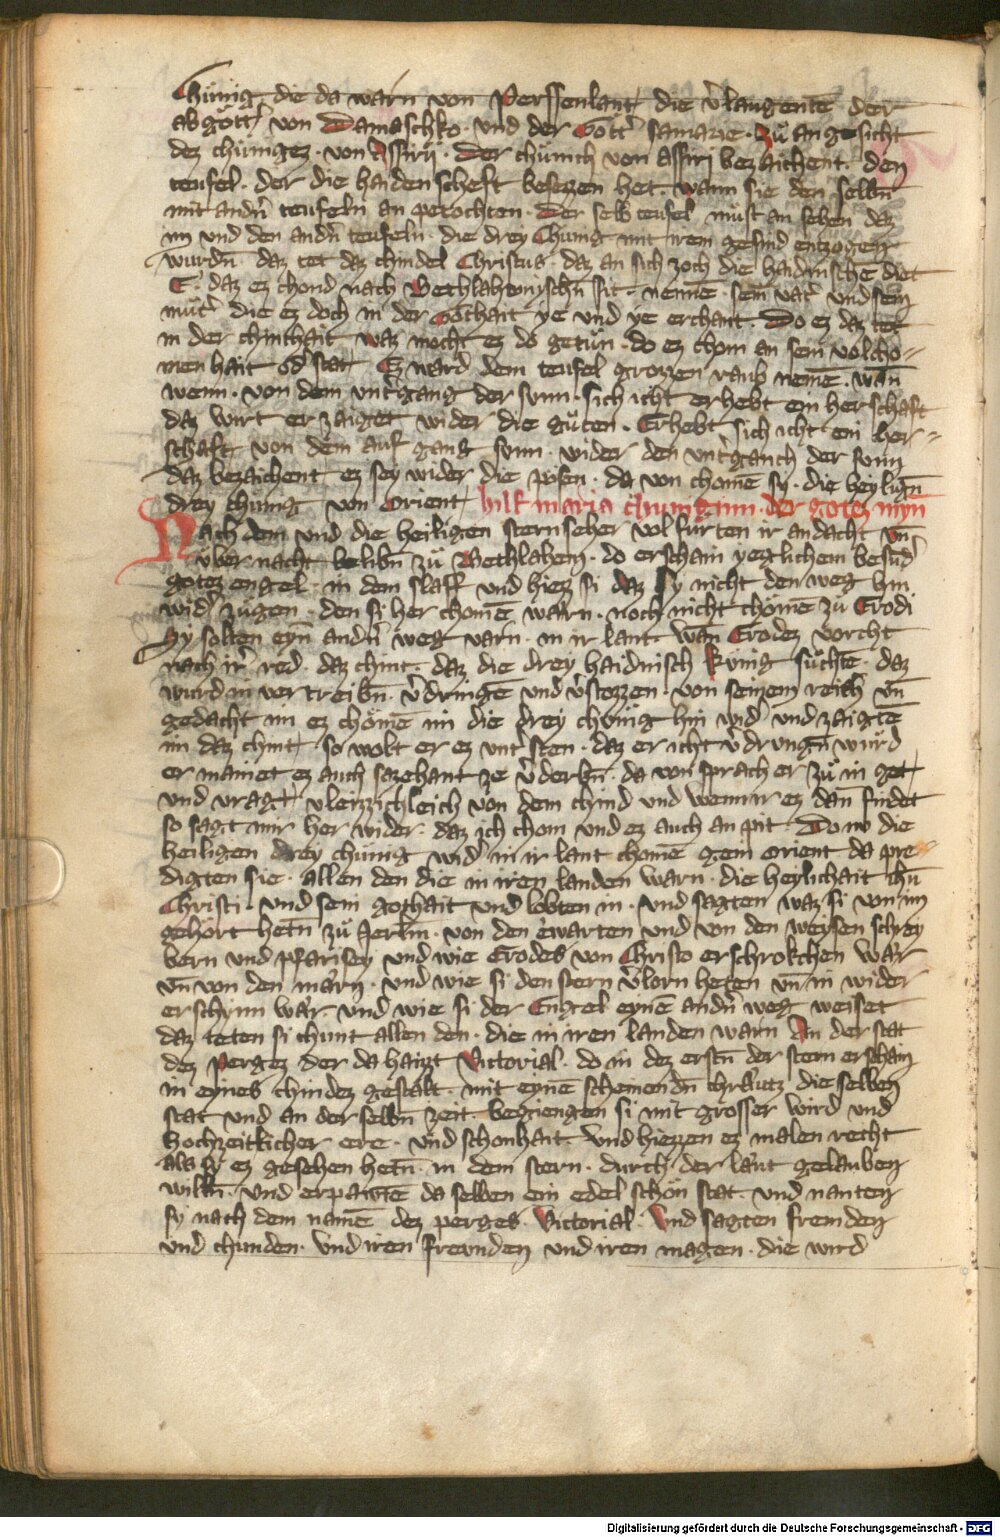 Chünig die da warn von Perssenlant die v̾laugentē der
abgött̾ von Damaschko · und der Gött̾ samarie · Zü an gesicht
dez chüniges · von Assirij · Der chünich von assiri bezaichent · den
teufel · der die haiden scheft besezzen het · wann sie den selbn̄
mit andn̄ teufeln an petochten · Der selb teufel müst an sehen daz
im und den andn̄ teufeln · die drey Chunig mit irem gesind entzogen
wurdn̄ · daz tet daz chindel Christus · daz an sich zoch die haidnische diet
E · daz ez chond nach Bethlahemyschn̄ sit · nennē · sein vat̾ und sein
müt̾ die ez doch in der Gothait ye und ye erchant · Do ez daz tet
in der chinthait waz mocht ez do getün · do ez chom an sein volcho=
men hait od̾ stat Ez ward dem teufel grozzen raub nemē · wan̄
wenn · von dem unt̾gang der sunn · sich icht erhebt ein her schaft
daz wirt er zaiget wider die güten · Erhebt sich icht ein her=
schaft von dem auf gang sunn · wider den unt̾ganch der sunn
daz bezaichent ez sey wider die pösen · da von chomē sy · die heylign̄
drey chünig von Orient hilf maria chunginn · der gotez myn̄
Nach dem und die heiligen sternseher vol fürten ir andacht un̄
über nacht belibn̄ zü Bethlahem · do erschain yezlichem besūd̾
gotez engel · in dem slaff und hiezz si daz sy nicht den weg hin
wid̾ zügen · den si her chomē warn · noch nicht chömē zü Erodi
Sy solten eyn̄ andn̄ weg varn · in ir lant wan̄ Erodez vorcht
nach ir̾ red · daz chint · daz die drey haidnisch künig süchtē · daz
wurd in ver treibn̄ · v̾dringē und v̾stozzen · von seinem reich un̄
gedacht im ez chömē im die drey chünig hin wid̾ und zaigtē
im daz chint so wolt er ez unt̾ sten · daz er icht v̾drungn̄ würd
er mainet ez auch sazehant ze v̾derbn̄ · da von sprach er zü in get
und vragt vleizzichleich von dem chind und wenn ir ez dan̄ findet
so sagt mir her wider · daz ich chom und ez auch an pit · Do nu die
heiligen drey chünig wid̾ in ir lant chomē gein Orient da pre=
digten sie · allen den die in iren landen warn · die heylichait ihū
Christi · und sein gothait und lobten in · und sagten waz si von im
gehört hetn̄ zü Jerlm̄ · von den ewarten und von den weysen schrey
bern und pfarisey und wie Erodes von Christo erschrokchen wär
un̄ von den märn · und wie si den stern v̾lorn heten un̄ in wider
erschinn wär · und wie si der Engel eynē andn̄ weg weiset
daz teten si chunt allen den · die in iren landen warn An der stat
dez Pergez der da haizzt Victorial · do in dez erstn̄ der stern erschain
in eynes chindez gestalt · mit eynē scheinendn̄ chräutz die selben
stat und an der selbn̄ zeit begiengen si mit grosser wird und
hochzeitlicher ere · und schonhait · Und hiezzen ez malen recht
als sy ez gesehen hetn̄ in dem stern · durch der laut gelauben
willn̄ · und erpawtē da selben ein edel schön stat · und nanten
sy nach dem namē dez perges · Victorial · Und sagten fremden
und chunden · Und iren freunden und iren magen · die wird
Digitalisierung gefördert durch die Deutsche Forschungsgemeinschaft - DFG